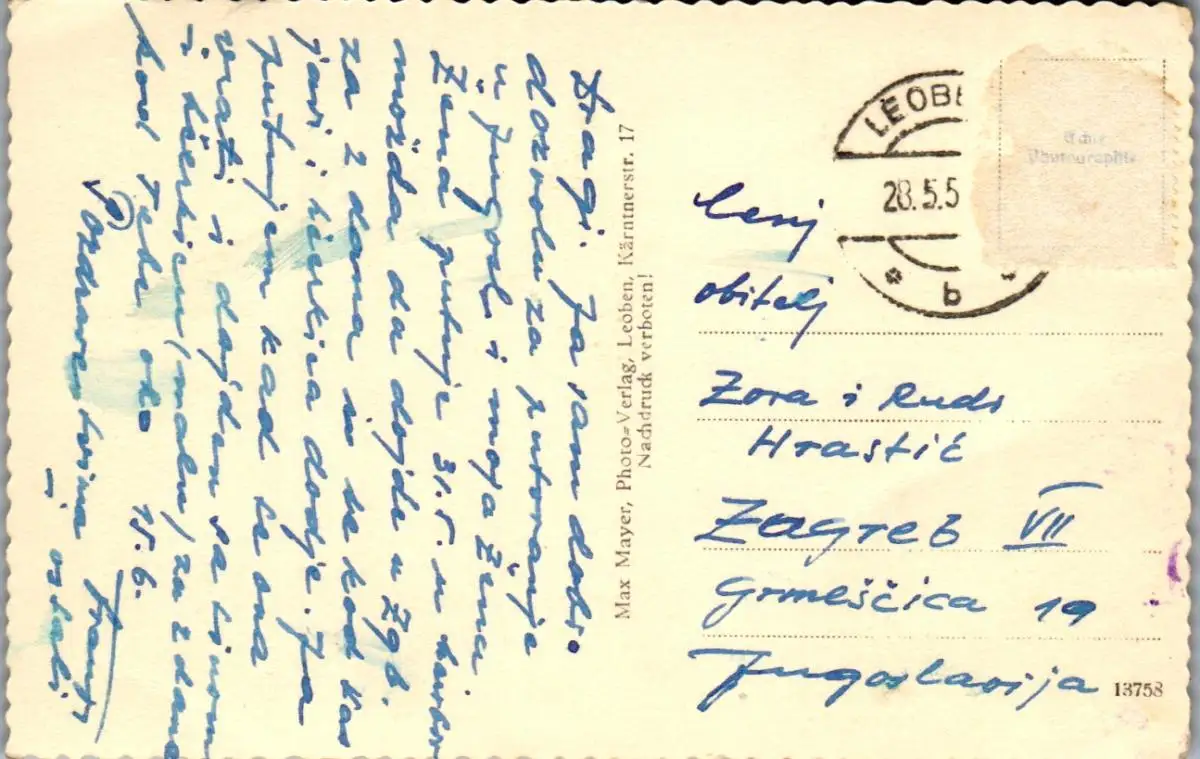 Dragi. Ja sam dobio
dozvolu za putovanje
u Jugosl. i moja žena
Žena putuje 31.5. u
možda da dojde u Zgb.
za 2 dana i se kod Vas
javi i kćerkica dodje. Ja
putujem kad se ona
vrati i dojdem sa sinom
i kćerkicu (malu) za 2 dana
kod Tebe oko 15.6.
Pozdrav svima Franjo
i ostali
Max Mayer, Photo-Verlag, Leoben, Kärntnerstr. 17
Nachdruck verboten!
LEOBE
28.5.5
b
Echte
Photographie
Cenj
obitelj
Zora i Rudi
Hrastić
Zagreb VII
Grmeščica 19
Jugoslavija
13758